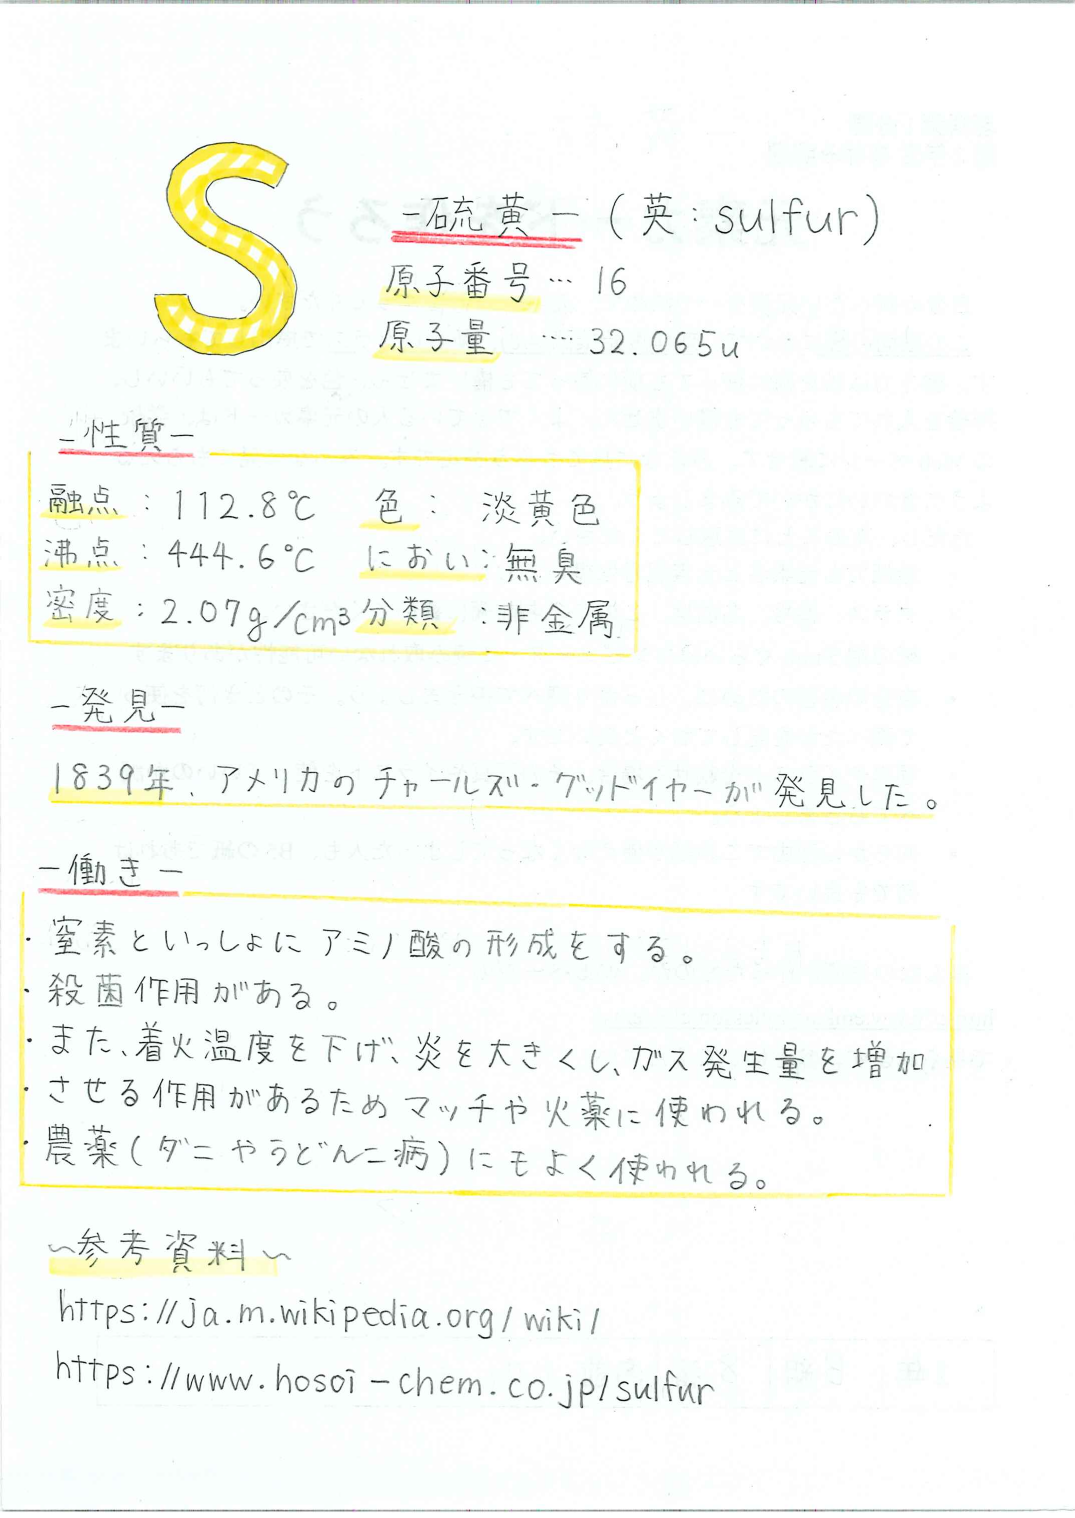 S
-硫黄-(英:sulfur)
原子番号…16
原子量 …32.065u
-性質-
融点:112.8℃ 色:淡黄色
沸点:444.6℃ におい:無臭
密度:2.07g/cm³ 分類:非金属
-発見-
1839年、アメリカのチャールズ・グッドイヤーが発見した。
-働き-
・窒素といっしょにアミノ酸の形成をする。
・殺菌作用がある。
・また、着火温度を下げ、炎を大きくし、ガス発生量を増加
・させる作用があるためマッチや火薬に使われる。
・農薬(ダニやうどんこ病)にもよく使われる。
~参考資料~
https://ja.m.wikipedia.org/wiki/
https://www.hosoi-chem.co.jp/sulfur